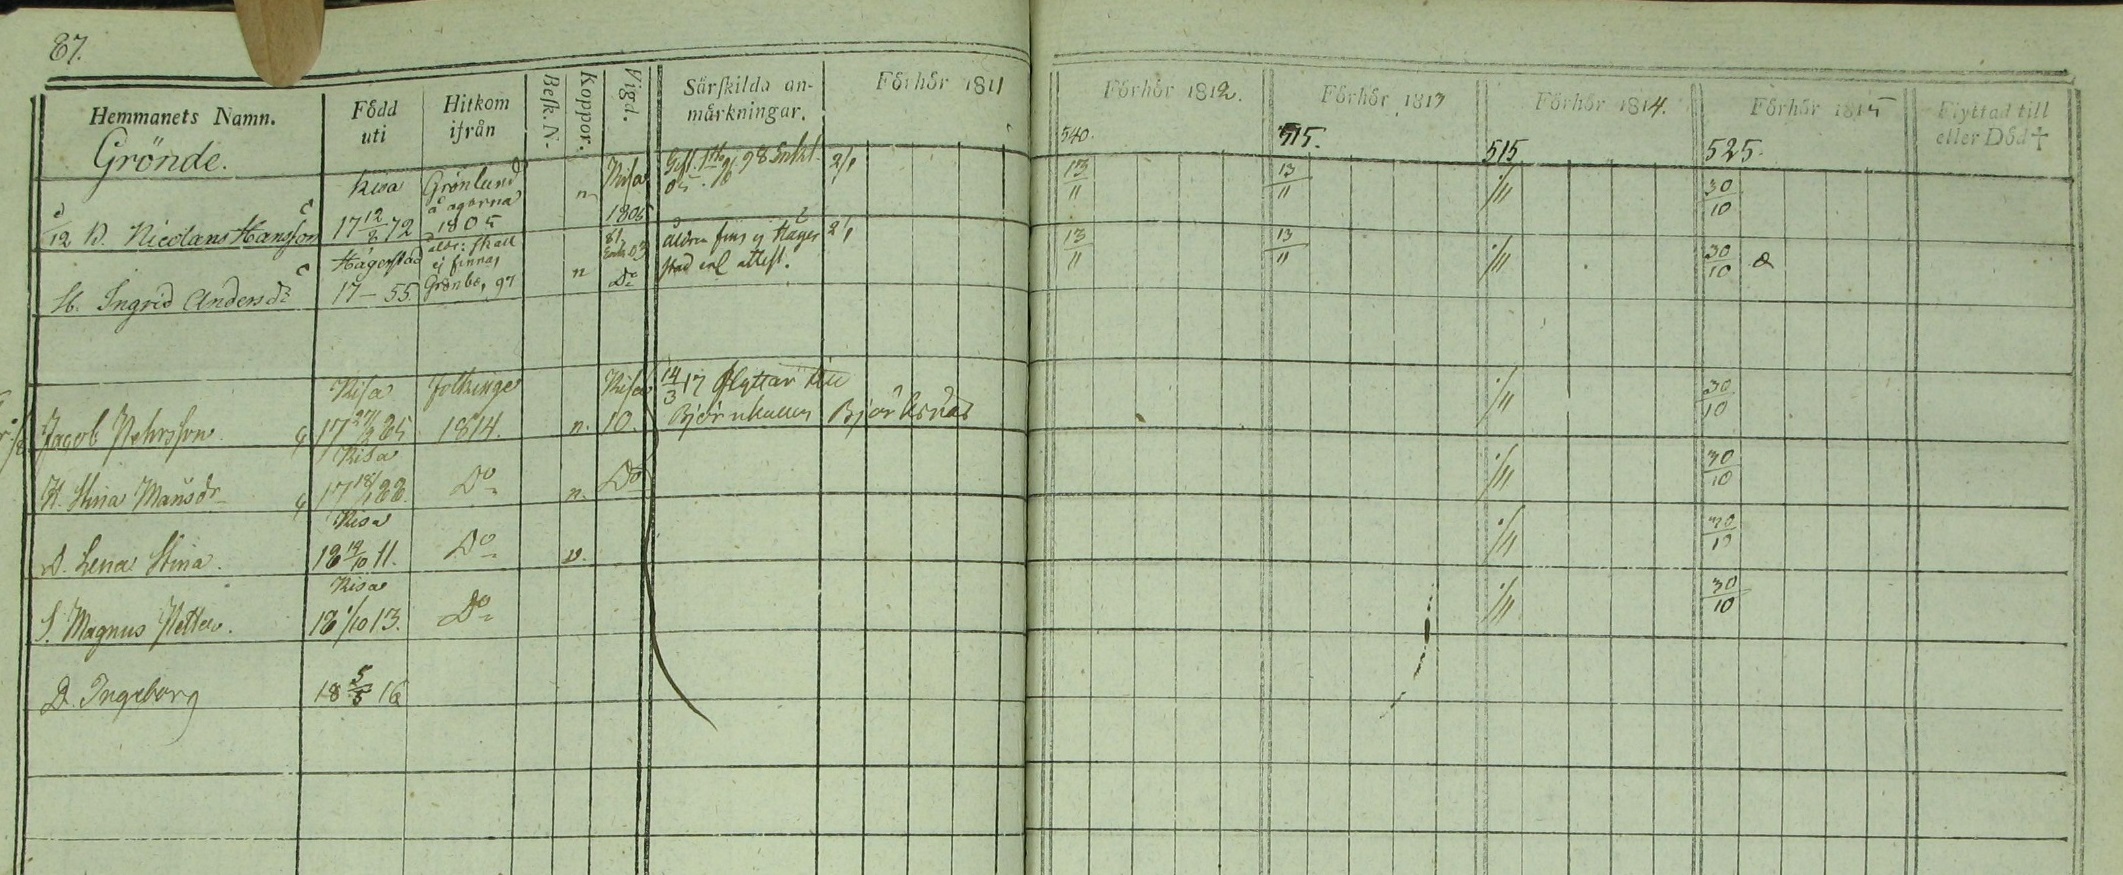 87.
Hemmanets Namn. Född uti Hitkom ifrån Besk. N. Koppor. Vigd. Särskilda anmärkningar. Förhör 1811 Förhör 1812. Förhör 1813 Förhör 1814. Förhör 1815 Flyttad till eller Död †
Grönde. 540. 515. 515 525.
1/12 B. Nicolaus Hansson Kisa 17 12/8 72 Grönlund å ägorna 1805 n Kisa 1805 98 2/1 13/11 13/11 1/11 30/10
H. Ingrid Andersdr Hägerstad 17 – 55 ej finnas Grönbo, 97 n 03 Do åldren fins ej Hägerstad enl attest. 2/1 13/11 13/11 1/11 30/10 a
Jacob Pehrsson Kisa 17 27/3 85 Folkinge 1814. n. Kisa 10. 14/3 17 flyttar till Björnhallen Björkenäs 1/11 30/10
H. Stina Månsdr Kisa 17 18/1 88 Do n. Do 1/11 30/10
D. Lena Stina. Kisa 18 19/10 11. Do v. 1/11 30/10
S. Magnus Petter. Kisa 18 1/10 13. Do 1/11 30/10
D. Ingeborg 18 5/5 16